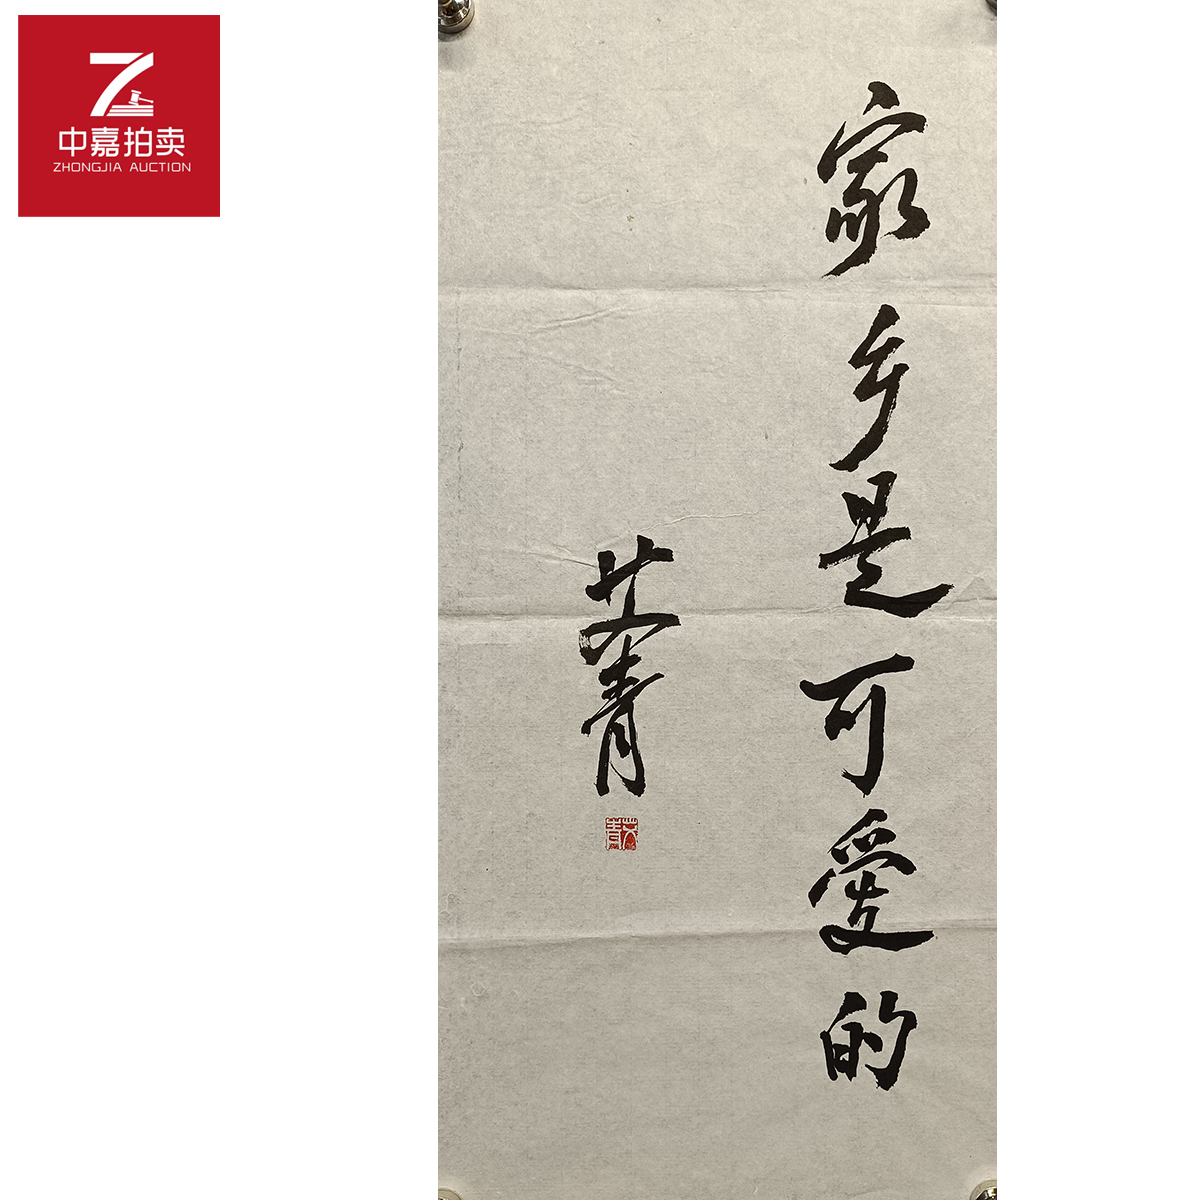 中嘉拍卖
ZHONGJIA AUCTION
家乡是可爱的
艾青
艾青